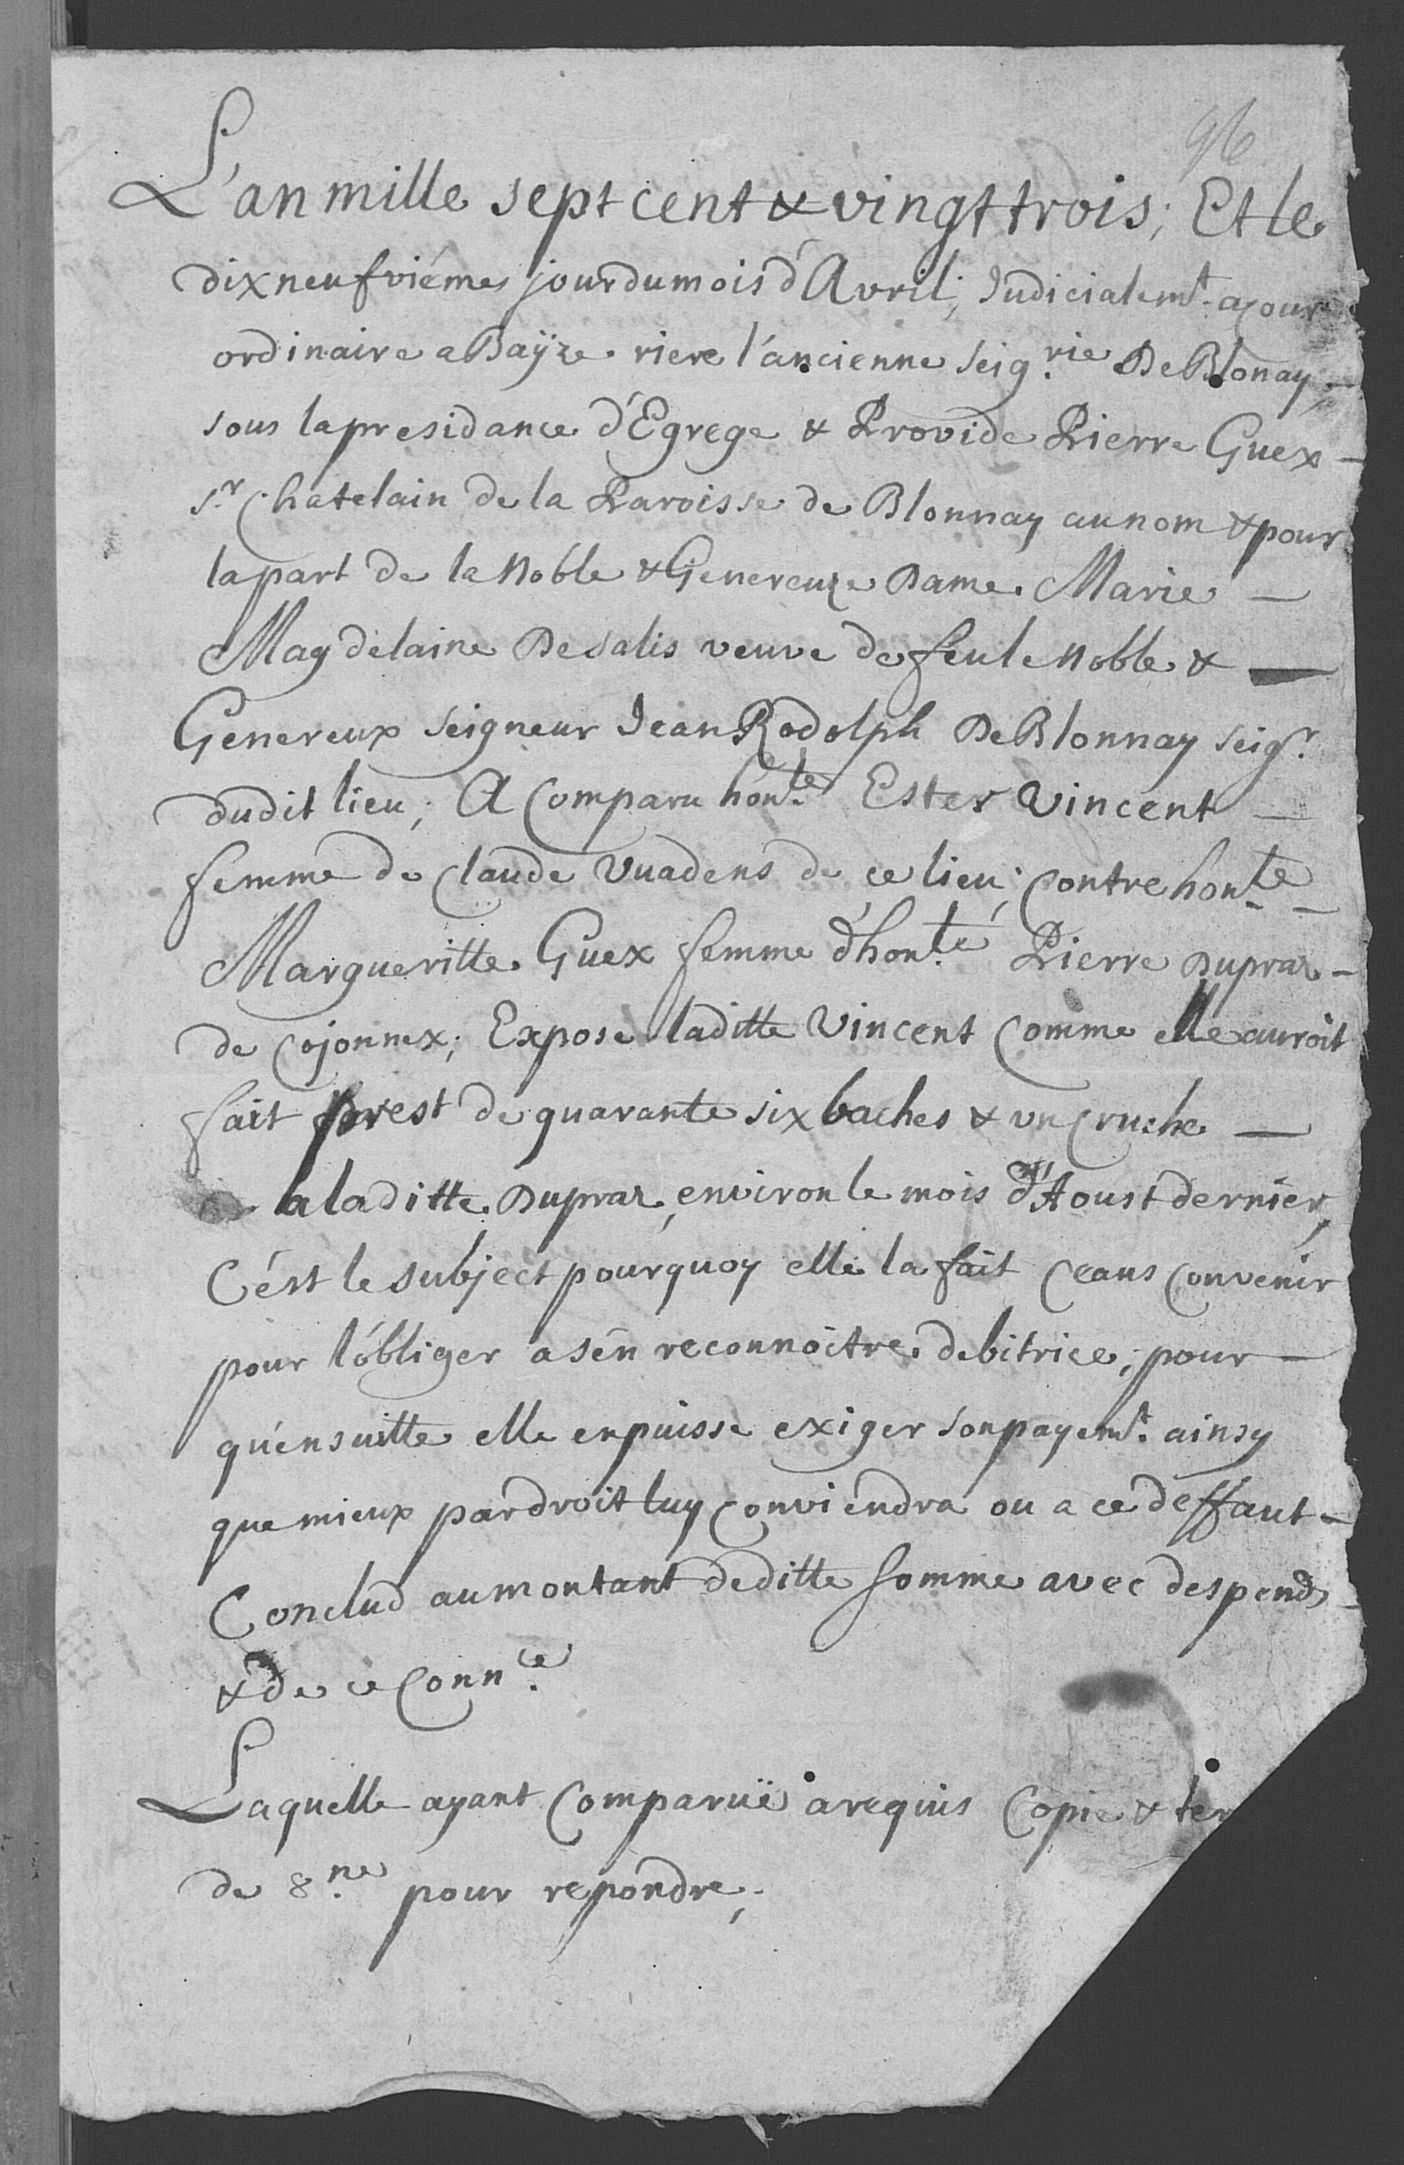 96
L'an mille sept cent & vingt trois; Et le
dixneufviéme jour du mois d'Avril; Judicialemt. a jour
ordinaire a Bayze riere l'ancienne Seig.rie De Blonay,
sous la presidance d'Egrege & Provide Pierre Guex
Sr. Chatelain de la Paroisse de Blonnay au nom & pour
la part de la Noble & Genereuze Dame Marie
Magdelaine De Salis veuve de feu le Noble &
Genereux Seigneur Jean Rodolph De Blonnay Seigr.
dudit lieu; A Comparu hon.te Ester Vincent
femme de Claude Vuadens de ce lieu; Contre hon.te
Margueritte Guex femme d'hon.te Pierre Dupraz
de Cojonnex; Expose laditte Vincent Comme elle auroit
fait prest de quarante six baches & un Cruche
a laditte Dupraz, environ le mois d'Aoust dernier,
C'ést le Subject pourquoy elle la fait Ceans Convenir
pour l'óbliger a s'en reconnoitre debitrice; pour
qu'ensuitte elle en puisse exiger son payemt. ainsy
que mieux par droit luy Conviendra ou a ce deffaut
Conclud au montant de ditte Somme avec despends
& de ce Conn.ce
Laquelle ayant Comparuë a requis Copie & ter
de 8.ne pour repondre;